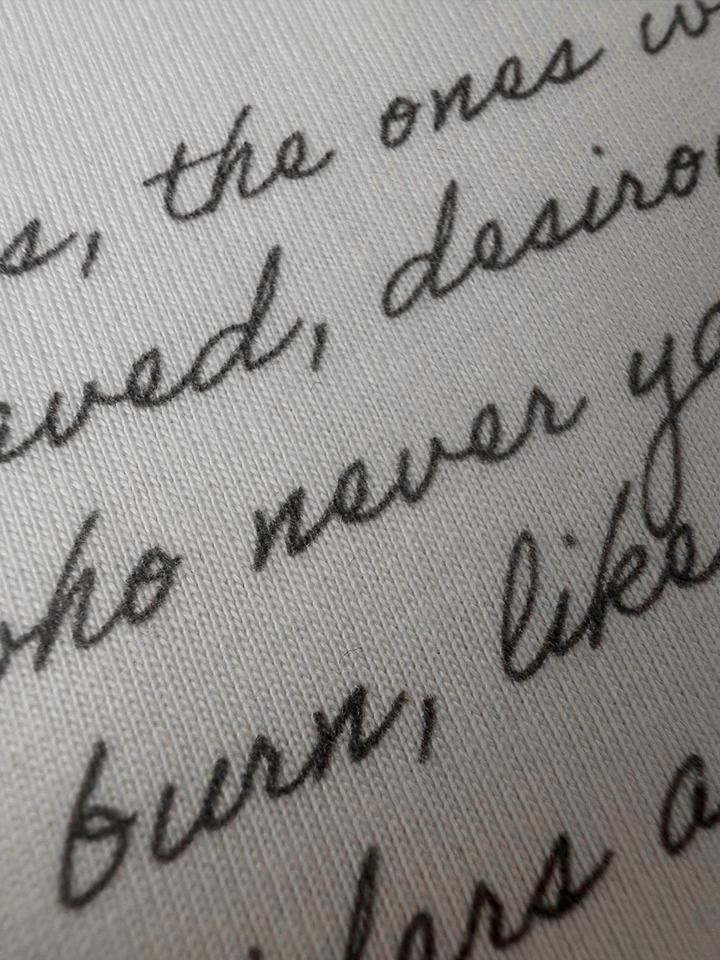 s, the ones w
eved, desirou
who never ya
burn, like
iders a